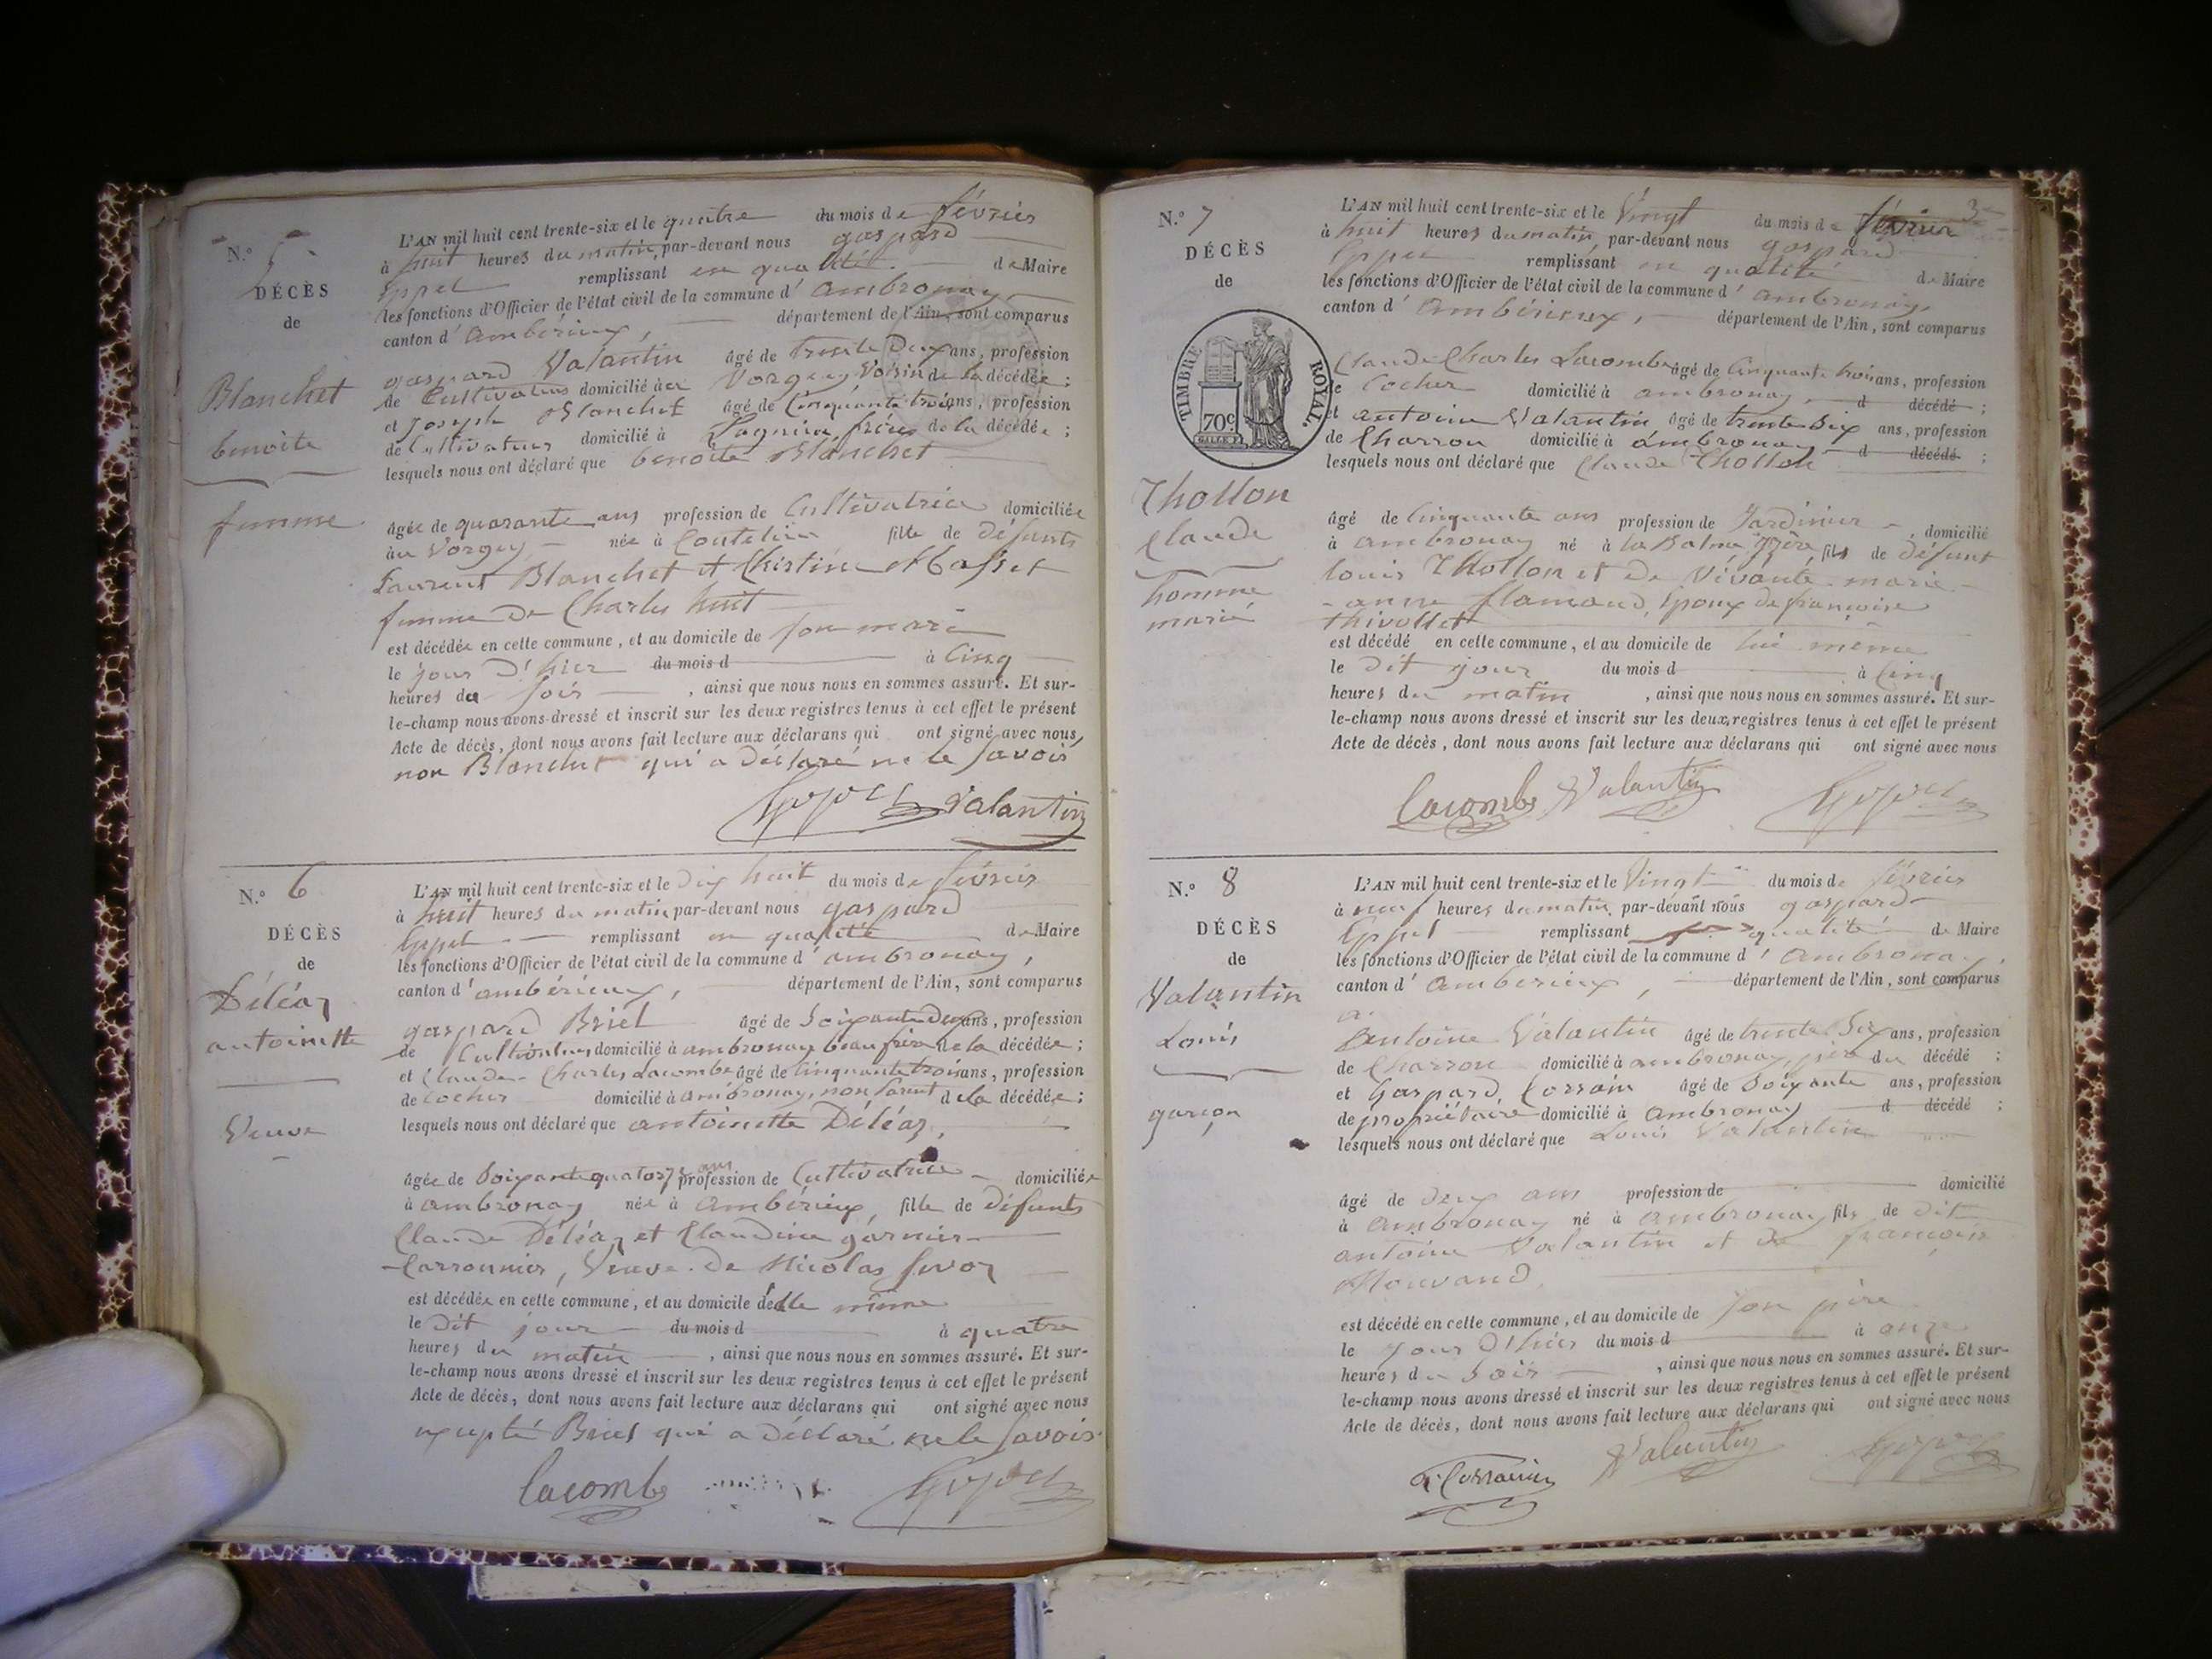 N.º 5
DÉCÈS
de
Blanchet
benoite
femme
L'AN mil huit cent trente-six et le quatre du mois de février
à huit heures du matin, par-devant nous gaspard
Eppel remplissant en qualité de Maire
les fonctions d'Officier de l'état civil de la commune d' ambronay,
canton d' ambérieux, département de l'Ain, sont comparus
gaspard Valantin âgé de trente deux ans, profession
de Cultivateur domicilié au Vorgey Voisin de la décédée ;
et Joseph Blanchet âgé de Cinquante trois ans, profession
de Cultivateur domicilié à Lagnieu frère de la décédée ;
lesquels nous ont déclaré que benoite Blanchet
âgée de quarante ans profession de Cultivatrice domiciliée
au Vorgey née à fille de défunts
Laurent Blanchet et Christine
femme de Charles huit
est décédée en cette commune, et au domicile de son mari
le jour d'hier du mois d à Cinq
heures du soir, ainsi que nous nous en sommes assuré. Et sur-
le-champ nous avons dressé et inscrit sur les deux registres tenus à cet effet le présent
Acte de décès, dont nous avons fait lecture aux déclarans qui ont signé avec nous,
non Blanchet qui a déclaré ne le savoir
Eppel Valantin
N.º 6
DÉCÈS
de
Déléaz
antoinette
Veuve
L'AN mil huit cent trente-six et le Dix huit du mois de février
à huit heures du matin par-devant nous gaspard
Eppel remplissant en qualité de Maire
les fonctions d'Officier de l'état civil de la commune d' ambronay,
canton d' ambérieux, département de l'Ain, sont comparus
gaspard Briel âgé de Soixante Deux ans, profession
de Cultivateur domicilié à ambronay beau frère de la décédée ;
et Claude-Charles Lacombe âgé de Cinquante trois ans, profession
de Cocher domicilié à ambronay, non parent de la décédée ;
lesquels nous ont déclaré que antoinette Déléaz,
âgée de Soixante quatorze ans profession de Cultivatrice domiciliée
à ambronay née à Ambérieux, fille de défunts
Claude Déléaz et Claudine garnier
Carronnier, Veuve de Nicolas
est décédée en cette commune, et au domicile d'elle même
le dit jour du mois d à quatre
heures du matin, ainsi que nous nous en sommes assuré. Et sur-
le-champ nous avons dressé et inscrit sur les deux registres tenus à cet effet le présent
Acte de décès, dont nous avons fait lecture aux déclarans qui ont signé avec nous
excepté Briel qui a déclaré ne le savoir
Lacombe Eppel
3
N.º 7
DÉCÈS
de
TIMBRE ROYAL.
70c
Thollon
Claude
homme
marié
L'AN mil huit cent trente-six et le Vingt du mois de février
à huit heures du matin, par-devant nous gaspard
Eppel remplissant en qualité de Maire
les fonctions d'Officier de l'état civil de la commune d' ambronay,
canton d' Ambérieux, département de l'Ain, sont comparus
Claude Charles Lacombe âgé de Cinquante trois ans, profession
de Cocher domicilié à ambronay, d décédé ;
et antoine Valantin âgé de trente Six ans, profession
de Charron domicilié à ambronay d décédé ;
lesquels nous ont déclaré que Claude Thollon
âgé de Cinquante ans profession de Jardinier, domicilié
à ambronay né à la Balme Izère fils de défunt
louis Thollon et de Vivante marie
-anne flamand, époux de françoise
thivollet
est décédé en cette commune, et au domicile de lui même
le dit jour du mois d à Cinq
heures du matin, ainsi que nous nous en sommes assuré. Et sur-
le-champ nous avons dressé et inscrit sur les deux registres tenus à cet effet le présent
Acte de décès, dont nous avons fait lecture aux déclarans qui ont signé avec nous
Lacombe Valantin Eppel
N.º 8
DÉCÈS
de
Valantin
Louis
garçon
L'AN mil huit cent trente-six et le Vingt du mois de février
à neuf heures du matin, par-devant nous gaspard
Eppel remplissant qualité de Maire
les fonctions d'Officier de l'état civil de la commune d' Ambronay,
canton d' Ambérieux, département de l'Ain, sont comparus
Antoine Valantin âgé de trente Six ans, profession
de Charron domicilié à ambronay, père du décédé ;
et Gaspard Corrain âgé de Soixante ans, profession
de propriétaire domicilié à Ambronay d décédé ;
lesquels nous ont déclaré que Louis Valantin
âgé de deux ans profession de domicilié
à Ambronay né à Ambronay fils de dit
antoine Valantin et de françoise
Mouvand
est décédé en cette commune, et au domicile de son père
le jour d'hier du mois d à onze
heures du Soir, ainsi que nous nous en sommes assuré. Et sur-
le-champ nous avons dressé et inscrit sur les deux registres tenus à cet effet le présent
Acte de décès, dont nous avons fait lecture aux déclarans qui ont signé avec nous
Valantin Eppel